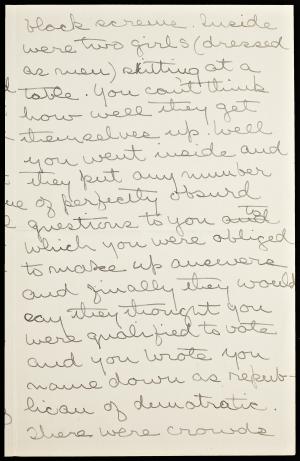 block screene. Inside
were two girls (dressed
as men) sitting at a
table. You can't think
how well they get
themselves up. Well
you went inside and
they put any number
of perfectly absurd
questions to you and to
which you were obliged
to make up answers
and finally they would
say they thought you
were qualified to vote
and you wrote you
name down as repub-
lican of demotratic.
There were crowds